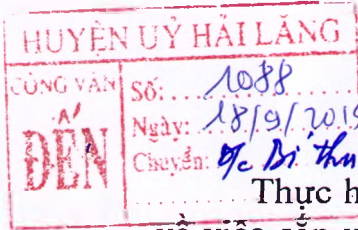 HUYỆN UỶ HẢI LĂNG
CÔNG VĂN
ĐẾN
Số: 1088
Ngày: 18/9/2019
Chuyển: Đ/c Bí thư
Thực h
về việc sắp x